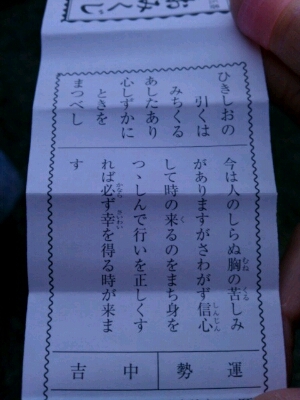 おみくじ
ひきしおの
引くは
みちくる
あしたあり
心しずかに
ときを
まつべし
今は人のしらぬ胸の苦しみ
がありますがさわがず信心
して時の来るのをまち身を
つゝしんで行いを正しくす
れば必ず幸を得る時が来ま
す
運勢
中吉